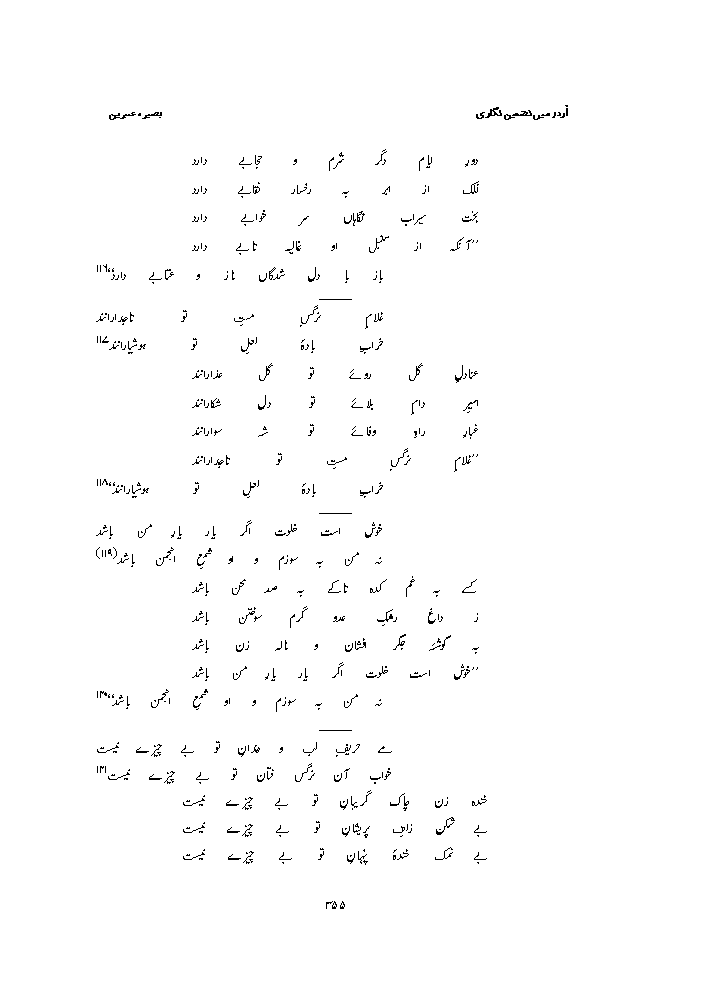 اُردو میں تضمین نگاری بصیرہ عنبرین
دورِ ایام دگر شرم و حجابے دارد
فلک از ابر بہ رخسار نقابے دارد
بخت سیراب نگاہاں سر خوابے دارد
’’آنکہ از سنبلِ او غالیہ تابے دارد
باز با دل شدگاں ناز و عتابے دارد‘‘۱۱۶
غلامِ نرگسِ مستِ تو تاجدارانند
خرابِ بادۂ لعلِ تو ہوشیارانند۱۱۷
عنادلِ گلِ روئے تو گل عذارانند
اسیرِ دامِ بلائے تو دل شکارانند
غبارِ راہِ وفائے تو شہ سوارانند
’’غلامِ نرگسِ مستِ تو تاجدارانند
خرابِ بادۂ لعلِ تو ہوشیارانند‘‘۱۱۸
خوش است خلوت اگر یار یارِ من باشد
نہ من بہ سوزم و او شمعِ انجمن باشد(۱۱۹)
کسے بہ غم کدہ تاکے بہ صد محن باشد
ز داغِ رشکِ عدو گرم سوختن باشد
بہ گوشئہ جگر افشان و نالہ زن باشد
’’خوش است خلوت اگر یار یارِ من باشد
نہ من بہ سوزم و او شمعِ انجمن باشد‘‘۱۲۰
مے حریفِ لب و دندانِ تو بے چیزے نیست
خواب آن نرگس فتان تو بے چیزے نیست۱۲۱
خندہ زن چاک گریبانِ تو بے چیزے نیست
بے شکن زلفِ پریشانِ تو بے چیزے نیست
بے نمک خندۂ پنہانِ تو بے چیزے نیست
۳۵۵